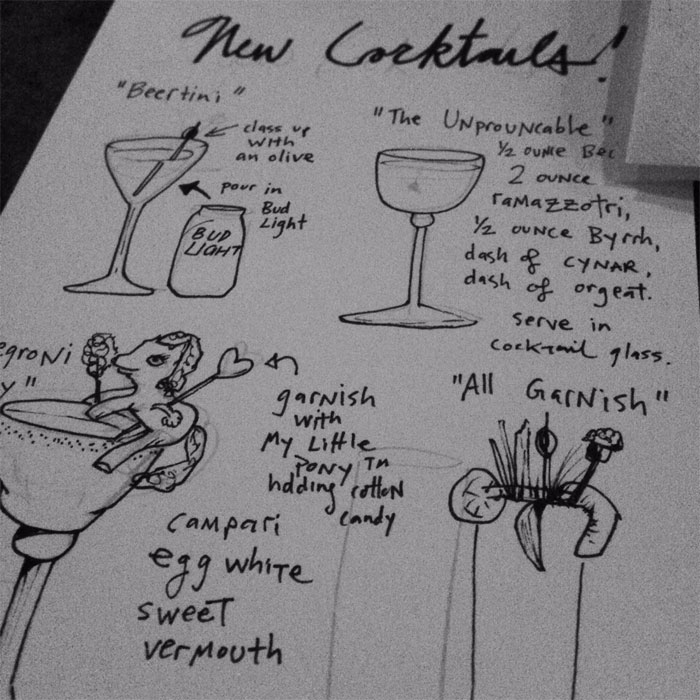 New Cocktails!
"Beertini"
class up
with
an olive
pour in
Bud
Light
BUD
LIGHT
"The UNProuNcable"
1/2 ounce
2 ounce
ramazzotti,
1/2 ounce Byrrh,
dash of CYNAR,
dash of orgeat.
serve in
cocktail glass.
egroni
y"
garnish
with
My Little
Pony TM
holding cotton
candy
campari
egg white
sweet
vermouth
"All Garnish"